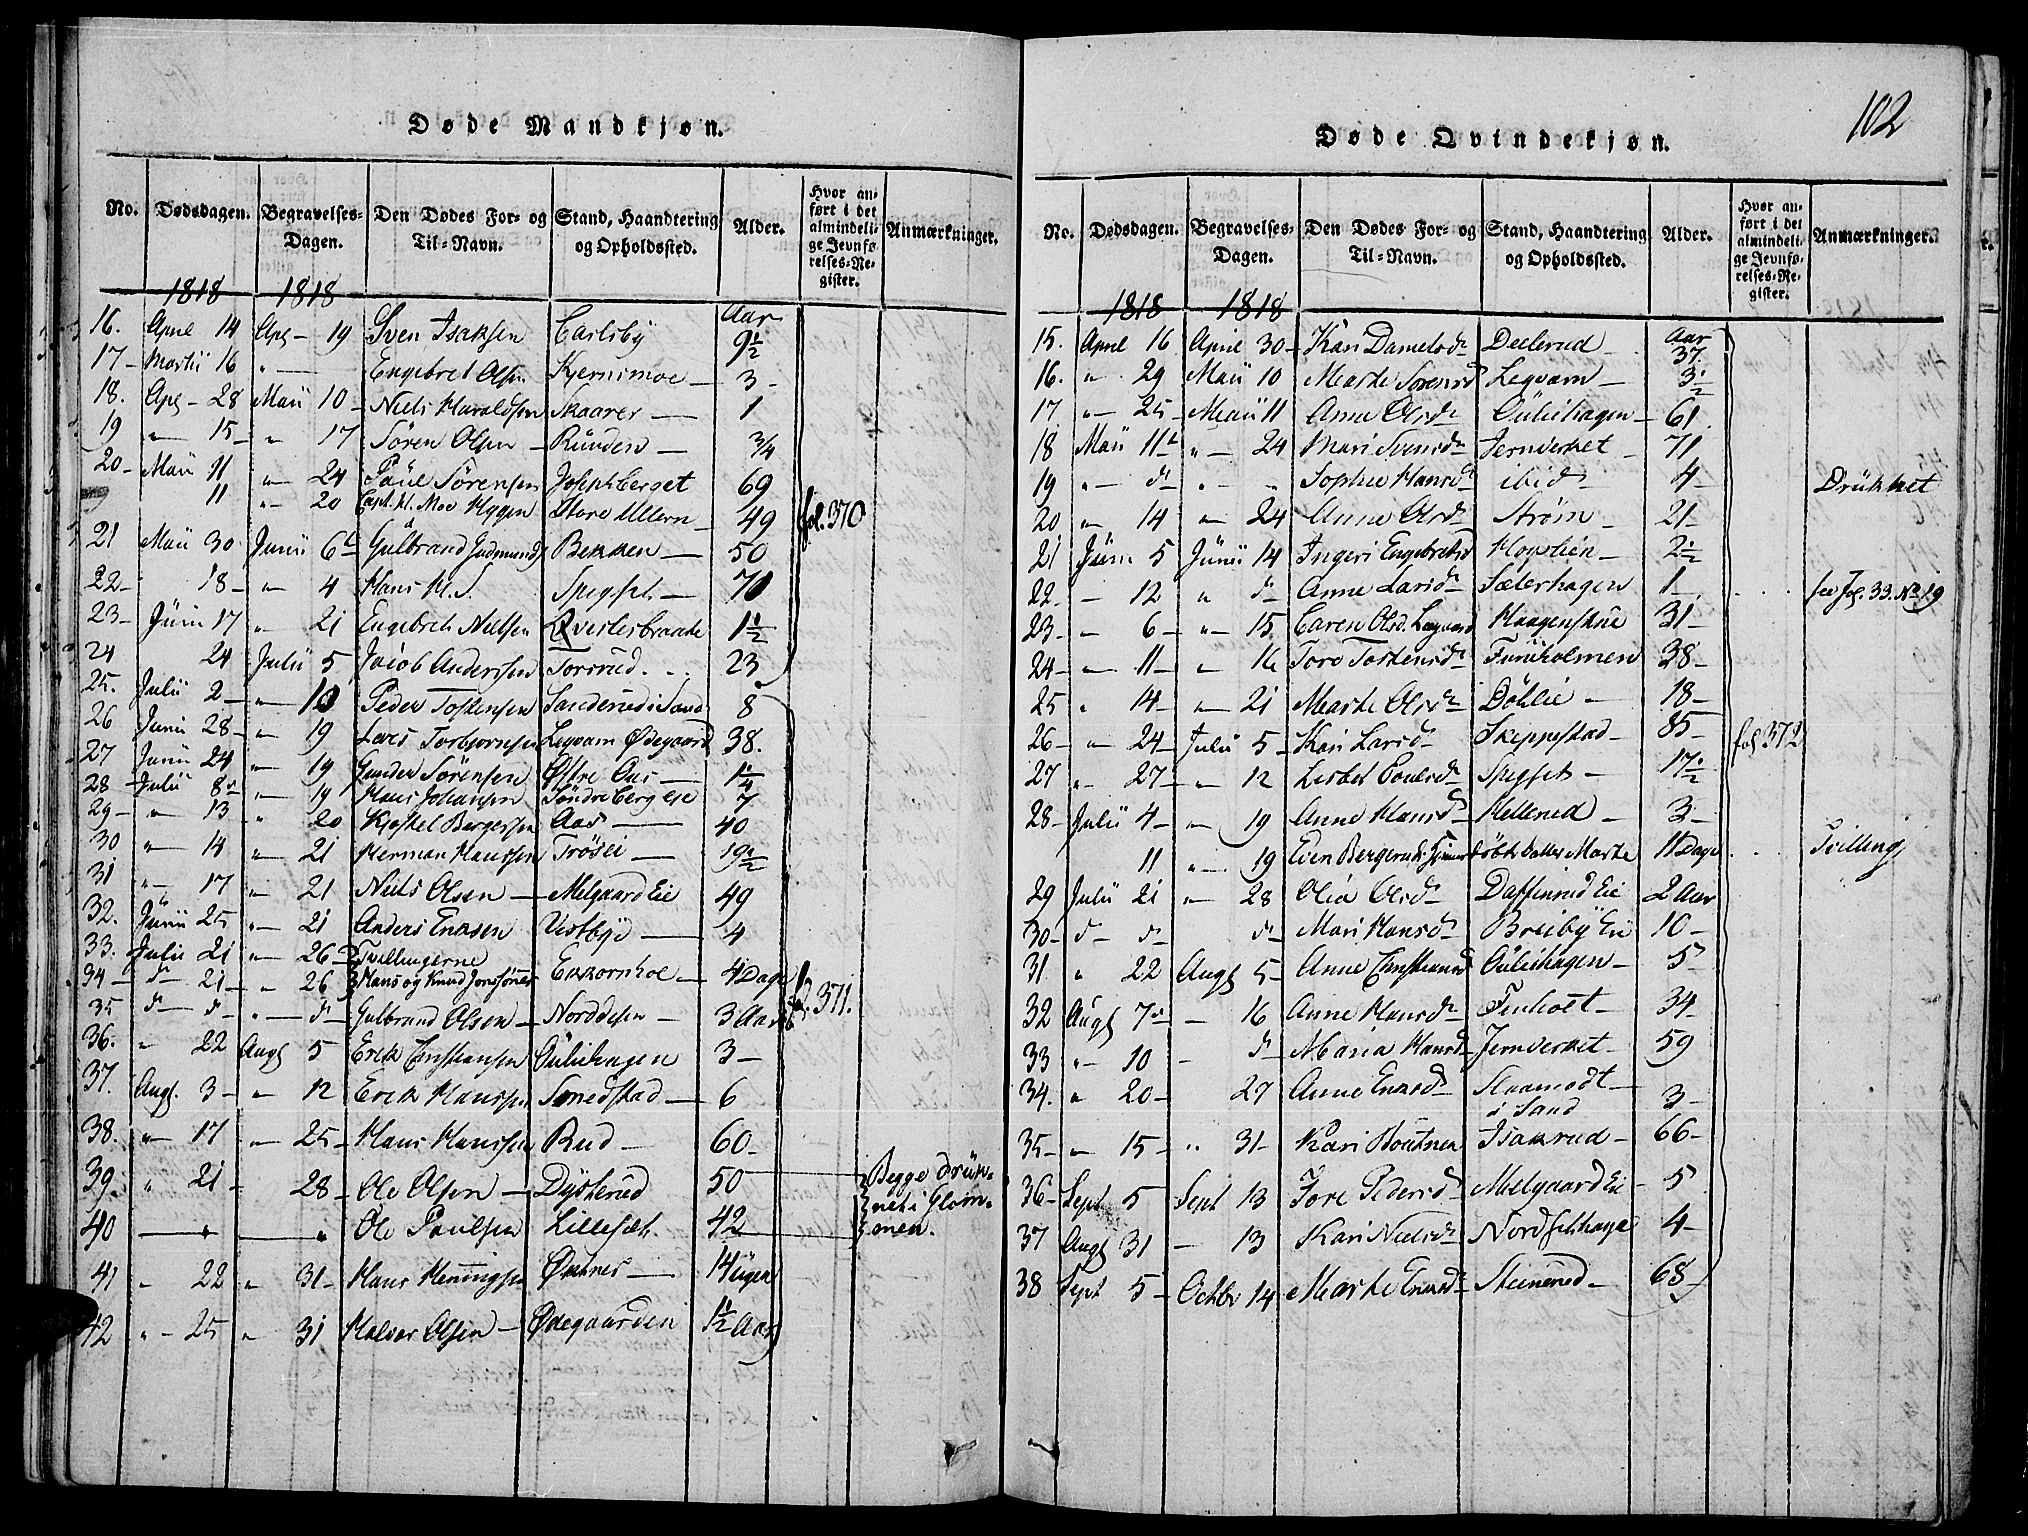 102
Døde Mandkjøn.
No. Dødsdagen. Begravelses-Dagen. Den Dødes For- og Til-Navn. Stand, Haandtering og Opholdssted. Alder. Hvor anført i det almindelige Jevnførelses-Register. Anmærkninger.
1818 1818
Aar
16. April 14 Apl - 19 Sven Isaksen Carlsby 9½
17 - Martii 16 " - Engebret Olsen Kjernsmoe - 3 -
18. Apl - 28 Maii 10 - Niels Haraldsen Skaarer - 1
19 " 15 - " 17 Søren Olsen - Runden - 3/4
20 - Maii 11 " 24 Paul Sørensen Josephberget 69
11 " 20 Capt. H. Moe Hygen Store Ullern - 49 fol. 370
21 Maii 30 Junii 6 Gulbrand Gudmunds Bekken - 50
22 - 18 - " 4 Hans H. S. - 70
23 - Juni 17 " 21 Engebret Nielsen Qvestesbraate 1½
24 24 Julii 5 Jacob Anderssen Torsrud. 23
25. Julii 2 - " 10 Peder Tostensen Sanderud i Sand 8
26 Junii 28 - " 19 Lars Torbjørnsen Legvam Ødegaard 38.
27 Junii 24 " 19 Gunder Sørensen Østre Aas - 1¼
28 Julii 8 " 19 Hans Johansen Søndre Berg eie 7
29 - " 13 " 20 Kjøstel Bergersen Aas - 40
30 " 14 " 21 Herman Hanssen Trøsei - 19½
31 " - 17 " 21 Niels Olsen - Melgaard Eie 49
32. Junii 25 " 21 Anders Ericksen Vestbye - 4
33. Julii 21 " 26 Tvillingerne
34 - d - 21 - " 26 Hans og Knud Jonsønner Eckornhoe - 4 Dage
35 d - d - " - d Gulbrand Olsen - - 3 Aar fol. 371.
36. " 22 Augt 5 Erik Christiansen Gulichagen 3 -
37. Augt. 3 - " 12 Erick Hanssen - 6
38. " 17 " 25 - Hans Hanssen Rud - 60 -
39. " 21 - 28 - Ole Olsen - Dysterud 50 Begge druknet i Glommen.
40 - " - " Ole Paulsen Lillesæt 42
41 " 22 " 31 - Hans Henningsen - 14 Uger
42 " - 25 " 31 Halvor Olsen - Ødegaarden 1½ Aar
Døde Qvindekjøn.
No. Dødsdagen. Begravelses-Dagen. Den Dødes For- og Til-Navn. Stand, Haandtering og Opholdssted. Alder. Hvor anført i det almindelige Jevnførelses-Register. Anmærkninger.
1818 1818
Aar
15. April 16 April 30 - Kari Danielsd Deelerud - 37.
16. " 29 Maii 10 Marte Sørensd Legvam - 3½
17 " 25 - Maii 11 Anne Olsd Gulichagen - 61
18 Maii 11 " - 24 Mari Svensd Jernverket 71
19 " - d " - Sophie Hansd ibid 4 Drukket
20 " 14 " 24 Anne Olsd Strøm - 21 -
21 Juni 5 Junii 14 Ingeri Engebretsd - 2½
22 - 12 " d Anne Larsd Sæterhagen 1 - see fol. 33. No 19
23 - " 6 - " 15 Caren Olsd. Haagenstue 31 -
24 - " 11 - " 16 Tore Tostensd Furuholmen 38 -
25 " 14 - " 21 Marte Olsd Døhlie - 18 -
26 - " 24 - Julii 5 - Kari Larsd Skeppestad - 85 - fol 372
27 " 27 - " 12 Lisbet Poulsd - 17½
28 - Julii 4 - " 19 Anne Hansd Hellerud - 3 -
11 " 19 Datter Marte 11 Dage Tvilling
29 Julii 21 " 28 Olia Olsd Daffinrud Eie 2 Aar
30 - d - d d Mari Hansd Breeby Eie 10 -
31. " 22 Augt 5 - Anne Christiansd Gulichagen - 5
32 Augt 7 - 16 Anne Hansd Fenholt - 34 -
33 " 10 - d Maria Hansd Jernverket - 59
34. " 20 - 27 Anne Ericksd Slaamodt - i Sand 3 -
35 - " 15 - " 31 - Kari Isakrud - 66 -
36 - Sept 5 Sept 13 Tore Pedersd Melgaard Eie - 5
37 Augt 31 - 13 Kari Nielsd Nordsethhage 4 -
38 Sept 5 - Octbr 14 Marte Ericksd Steinsrud - 68